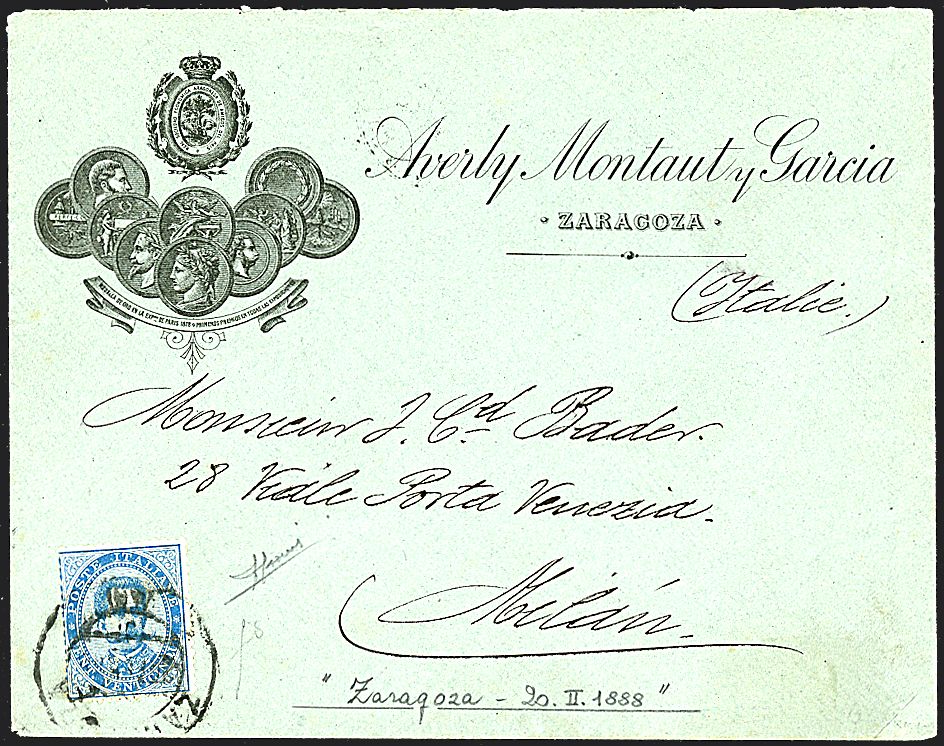 Averly Montaut y Garcia
· ZARAGOZA ·
(Italie.)
MEDALLA DE ORO EN LA EXPON DE PARIS 1878 Y PRIMEROS PREMIOS EN TODAS LAS EXPOSICIONES
Monsieur J. Cd Bader.
28 Viale Porta Venezia.
Milán.
POSTE ITALIANE
CENT. VENTICINQUE
"Zaragoza - 20. II. 1888"